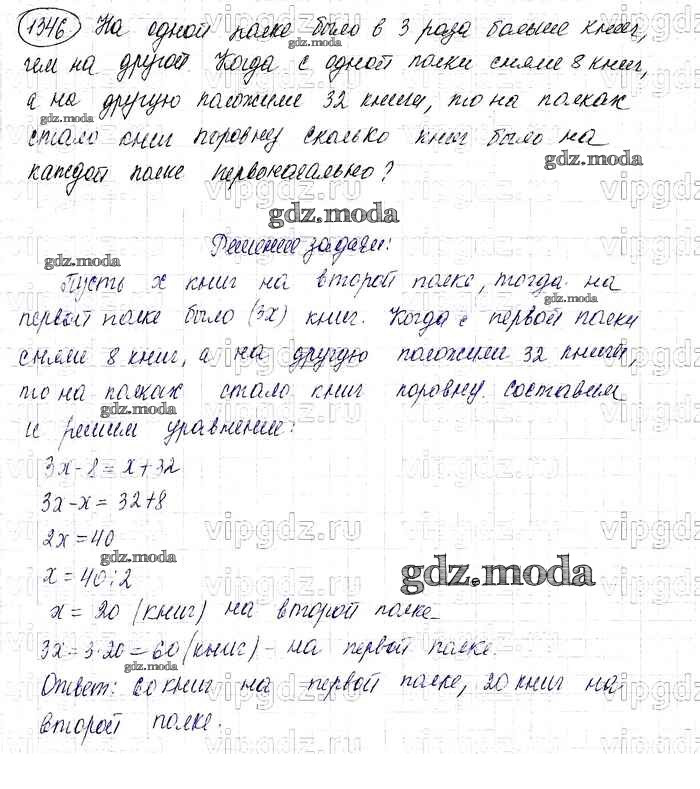 1346 На одной полке было в 3 раза больше книг,
чем на другой. Когда с одной полки сняли 8 книг,
а на другую положили 32 книги, то на полках
стало книг поровну сколько книг было на
каждой полке первоначально?
Решение задачи:
Пусть x книг на второй полке, тогда на
первой полке было (3x) книг. Когда с первой полки
сняли 8 книг, а на другую положили 32 книги,
то на полках стало книг поровну. составим
и решим уравнение:
3x-8=x+32
3x-x=32+8
2x=40
x=40:2
x=20 (книг) на второй полке
3x=3·20=60 (книг) - на первой полке.
Ответ: 60 книг на первой полке, 20 книг на
второй полке.
gdz.moda
gdz.moda
gdz.moda
gdz.moda
gdz.moda
gdz.moda
gdz.moda
gdz.moda
gdz.moda
gdz.moda
vipgdz.ru